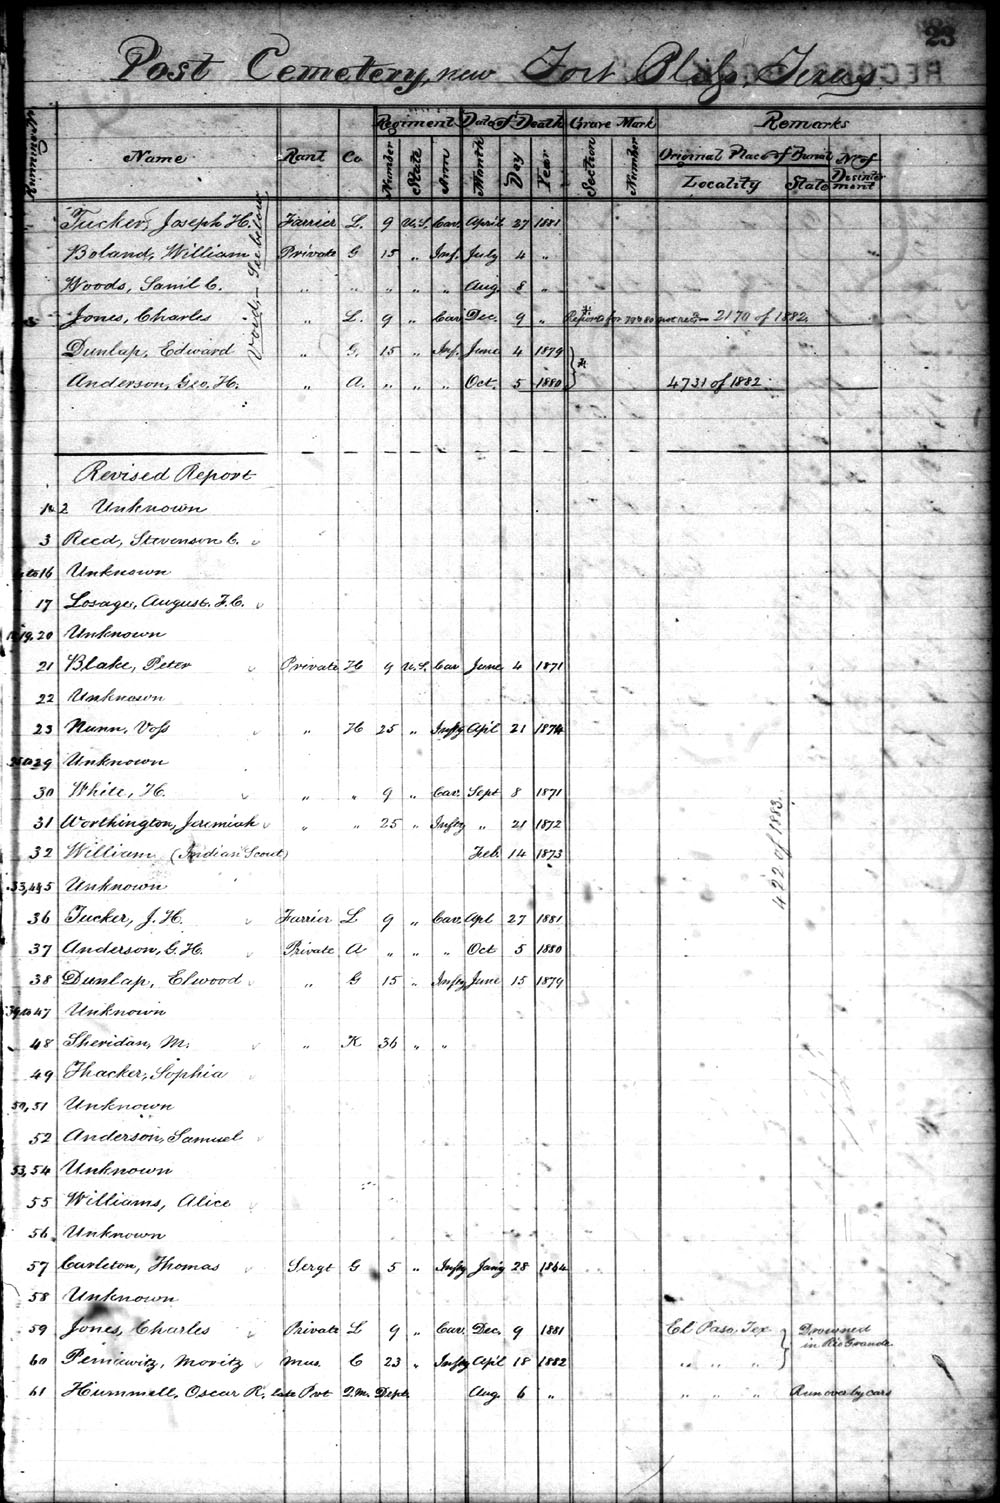 23
Post Cemetery, new Fort Bliss, Texas.
Regiment Date of Death Grave Mark Remarks
Name Rank Co Number State Arm Month Day Year Section Number Original Place of Burial No of Disinterment
Locality State
Tucker, Joseph H. Farrier L. 9 U.S. Cav. April 27 1881
Boland, William Private G 15 " Inf. July 4 "
Woods, Saml C. " " " " " Aug. 8 "
Jones, Charles " L. 9 " Cav. Dec. 9 " 2170 of 1882
Dunlap, Edward " G. 15 " Inf. June 4 1879
Anderson, Geo. H. " A. " " " Oct. 5 1880 4731 of 1882
Void - See below
Revised Report
1 & 2 Unknown
3 Reed, Stevenson C.
4 to 16 Unknown
17 Losage, August. F. C.
18, 19, 20 Unknown
21 Blake, Peter Private H 9 U.S. Cav June 4 1871
22 Unknown
23 Nunn, Voss " H 25 " Infty Apl 21 1874
29 Unknown
30 White, H. " " 9 " Cav. Sept 8 1871
31 Worthington, Jeremiah " " 25 " Infty " 21 1872
32 William (Indian Scout) Feb. 14 1873
33, 4 & 5 Unknown
36 Tucker, J. H. Farrier L 9 " Cav. Apl 27 1881
37 Anderson, G. H. Private A " " " Oct 5 1880
38 Dunlap, Elwood " G 15 " Infty June 15 1879
39 to 47 Unknown
48 Sheridan, M. " K 36 " "
49 Thacker, Sophia
50, 51 Unknown
52 Anderson, Samuel
53, 54 Unknown
55 Williams, Alice
56 Unknown
57 Carleton, Thomas Sergt G 5 " Infty Jany 28 1864
58 Unknown
59 Jones, Charles Private L 9 " Cav. Dec. 9 1881 El Paso, Tex. Drowned in Rio Grande
60 Peniewitz, Moritz Mus. C 23 " Infty April 18 1882 " " "
61 Hummell, Oscar R. late Pvt Q.M. Dept. Aug. 6 " " " " Run over by cars
422 of 1883.